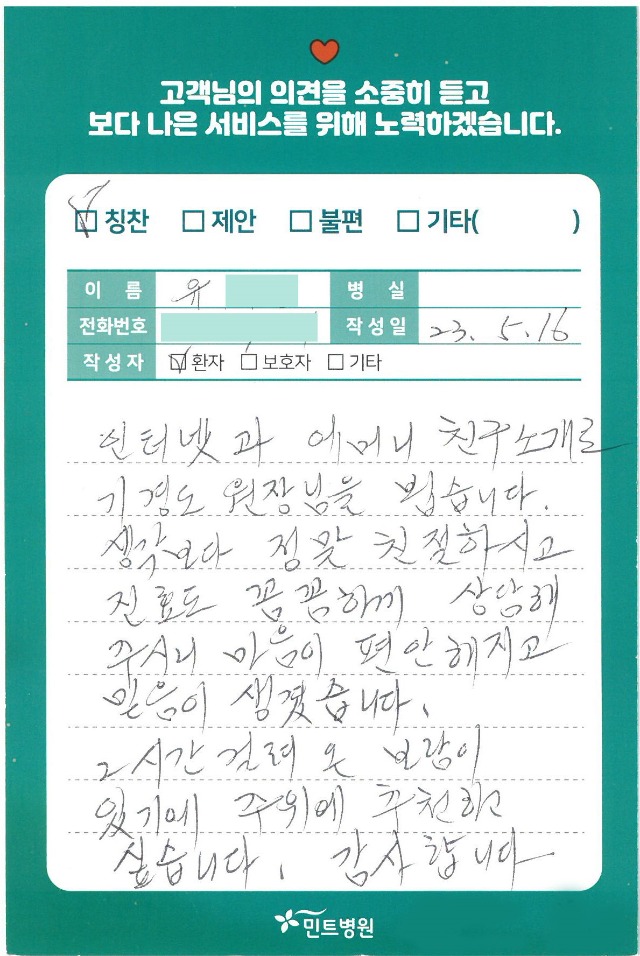 고객님의 의견을 소중히 듣고
보다 나은 서비스를 위해 노력하겠습니다.
☑ 칭찬 □ 제안 □ 불편 □ 기타( )
이 름 유 병 실
전화번호 작성일 23. 5. 16
작성자 ☑ 환자 □ 보호자 □ 기타
인터넷과 어머니 친구소개로
기경도 원장님을 뵙습니다.
생각보다 정말 친절하시고
진료도 꼼꼼하게 상담해
주시니 마음이 편안해지고
믿음이 생겼습니다.
2시간 걸려 온 보람이
있기에 주위에 추천하고
싶습니다. 감사합니다
민트병원